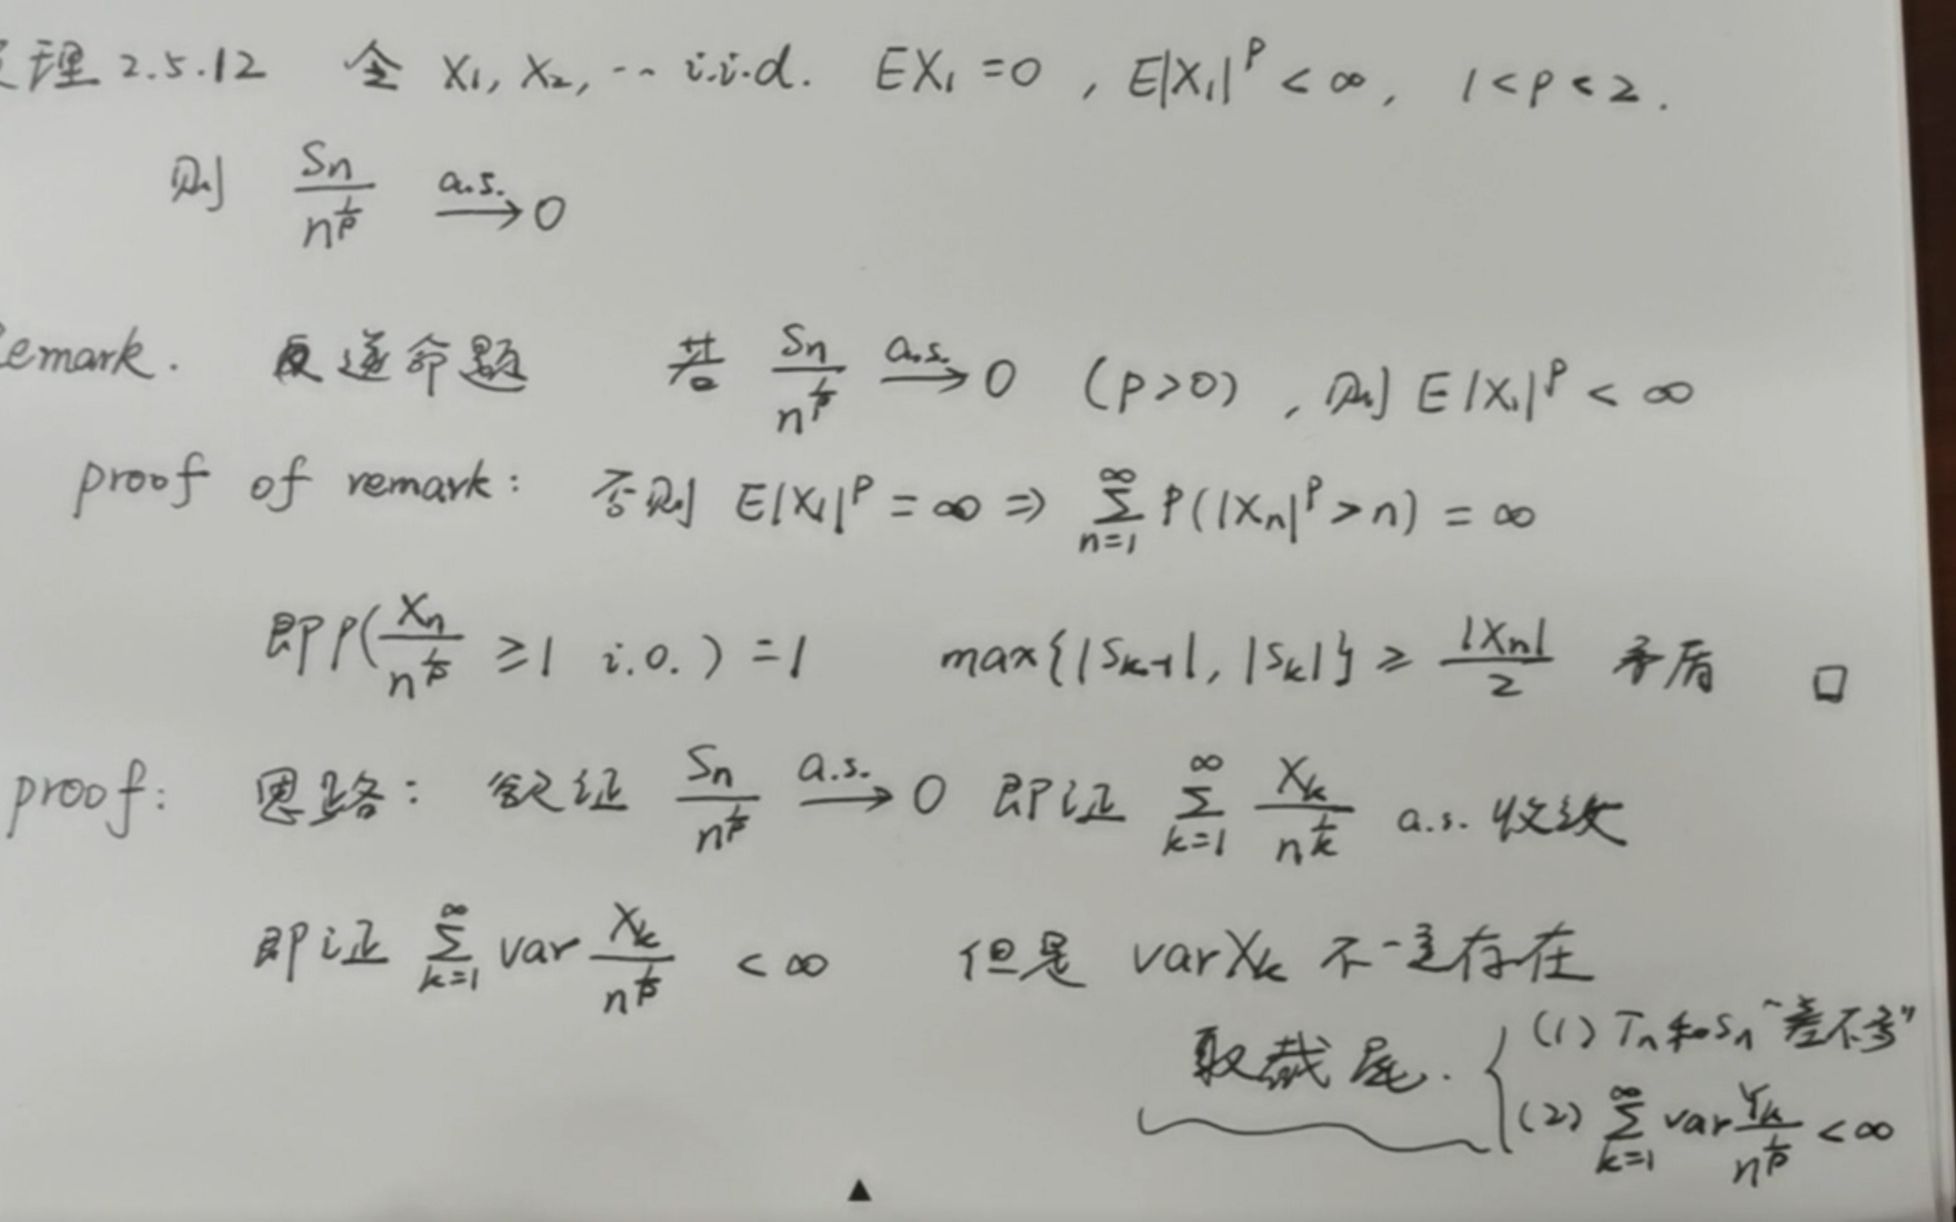 定理 2.5.12 令 X₁, X₂, ⋯ i.i.d. EX₁ = 0 , E|X₁|^p < ∞, 1 < p < 2 .
则 S_n / n^{1/p} →(a.s.) 0
Remark. 逆命题 若 S_n / n^{1/p} →(a.s.) 0 (p>0) , 则 E|X₁|^p < ∞
proof of remark: 否则 E|X₁|^p = ∞ ⇒ ∑_{n=1}^∞ P(|X_n|^p > n) = ∞
即 P( X_n / n^{1/p} ≥ 1 i.o. ) = 1 max{|S_{k-1}|, |S_k|} ≥ |X_n| / 2 矛盾 □
proof: 思路: 欲证 S_n / n^{1/p} →(a.s.) 0 即证 ∑_{k=1}^∞ X_k / n^{1/k} a.s. 收敛
即证 ∑_{k=1}^∞ var X_k / n^{1/p} < ∞ 但是 var X_k 不一定存在
取截尾. { (1) T_n 和 S_n "差不多"
(2) ∑_{k=1}^∞ var Y_k / n^{1/p} < ∞